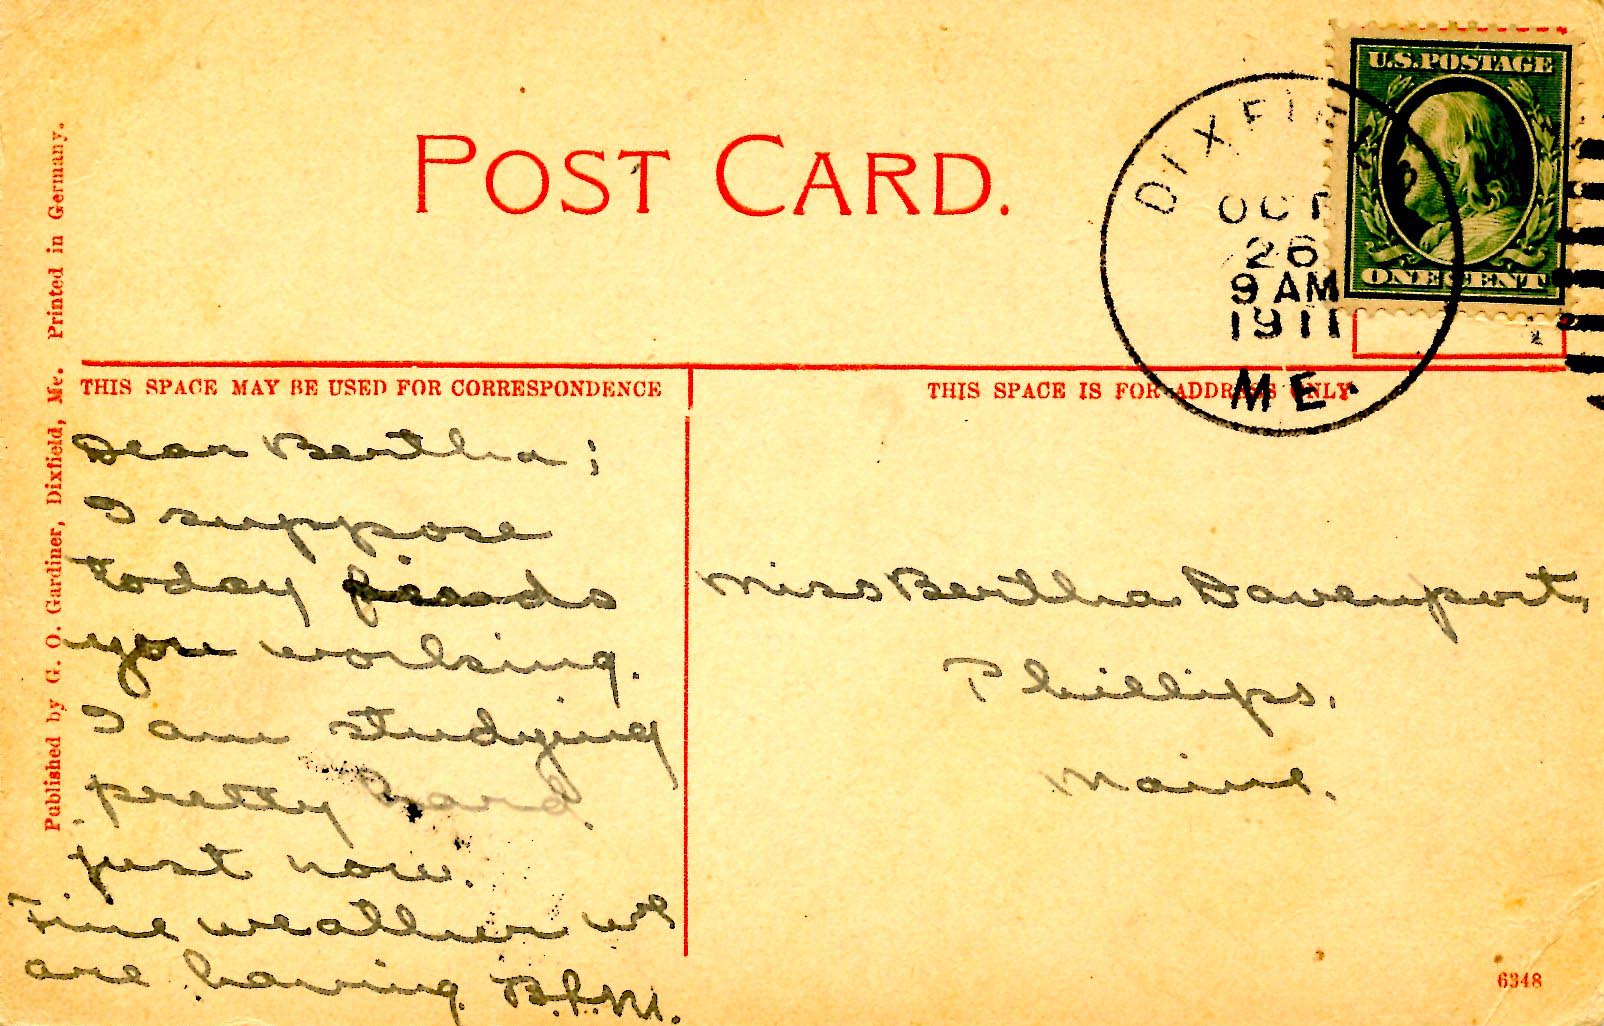 POST CARD.
U.S. POSTAGE
ONE CENT
DIXFIE
OCT
26
9 AM
1911
ME.
Published by G. O. Gardiner, Dixfield, Me. Printed in Germany.
THIS SPACE MAY BE USED FOR CORRESPONDENCE
THIS SPACE IS FOR ADDRESS ONLY
Dear Bertha;
I suppose
today finds
you working.
I am studying
pretty hard
just now.
Fine weather we
are having. B.L.M.
Miss Bertha Davenport,
Phillips,
Maine.
6348